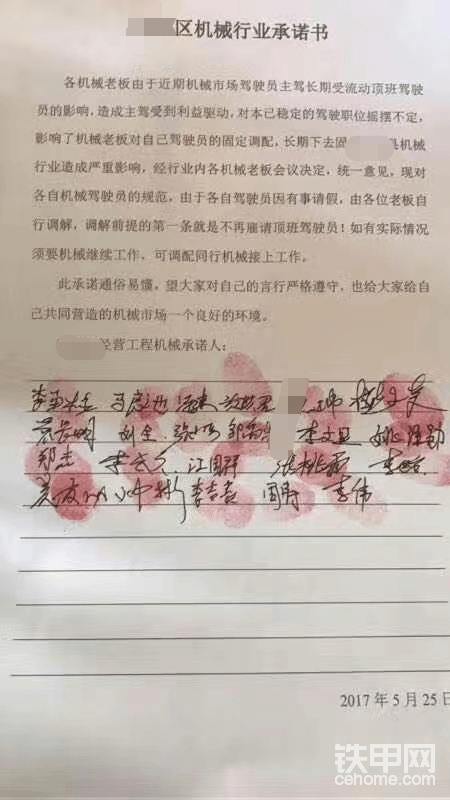 区机械行业承诺书
各机械老板由于近期机械市场驾驶员主驾长期受流动顶班驾驶
员的影响，造成主驾受到利益驱动，对本已稳定的驾驶职位摇摆不定，
影响了机械老板对自己驾驶员的固定调配，长期下去固 县机械
行业造成严重影响，经行业内各机械老板会议决定，统一意见，现对
各自机械驾驶员的规范，由于各自驾驶员因有事请假，由各位老板自
行调解，调解前提的第一条就是不再雇请顶班驾驶员！如有实际情况
须要机械继续工作，可调配同行机械接上工作。
此承诺通俗易懂，望大家对自己的言行严格遵守，也给大家给自
己共同营造的机械市场一个良好的环境。
经营工程机械承诺人：
刘全 李文国
郑杰 江国群 张桃霞
李伟
2017年5月25日
铁甲网
cehome.com